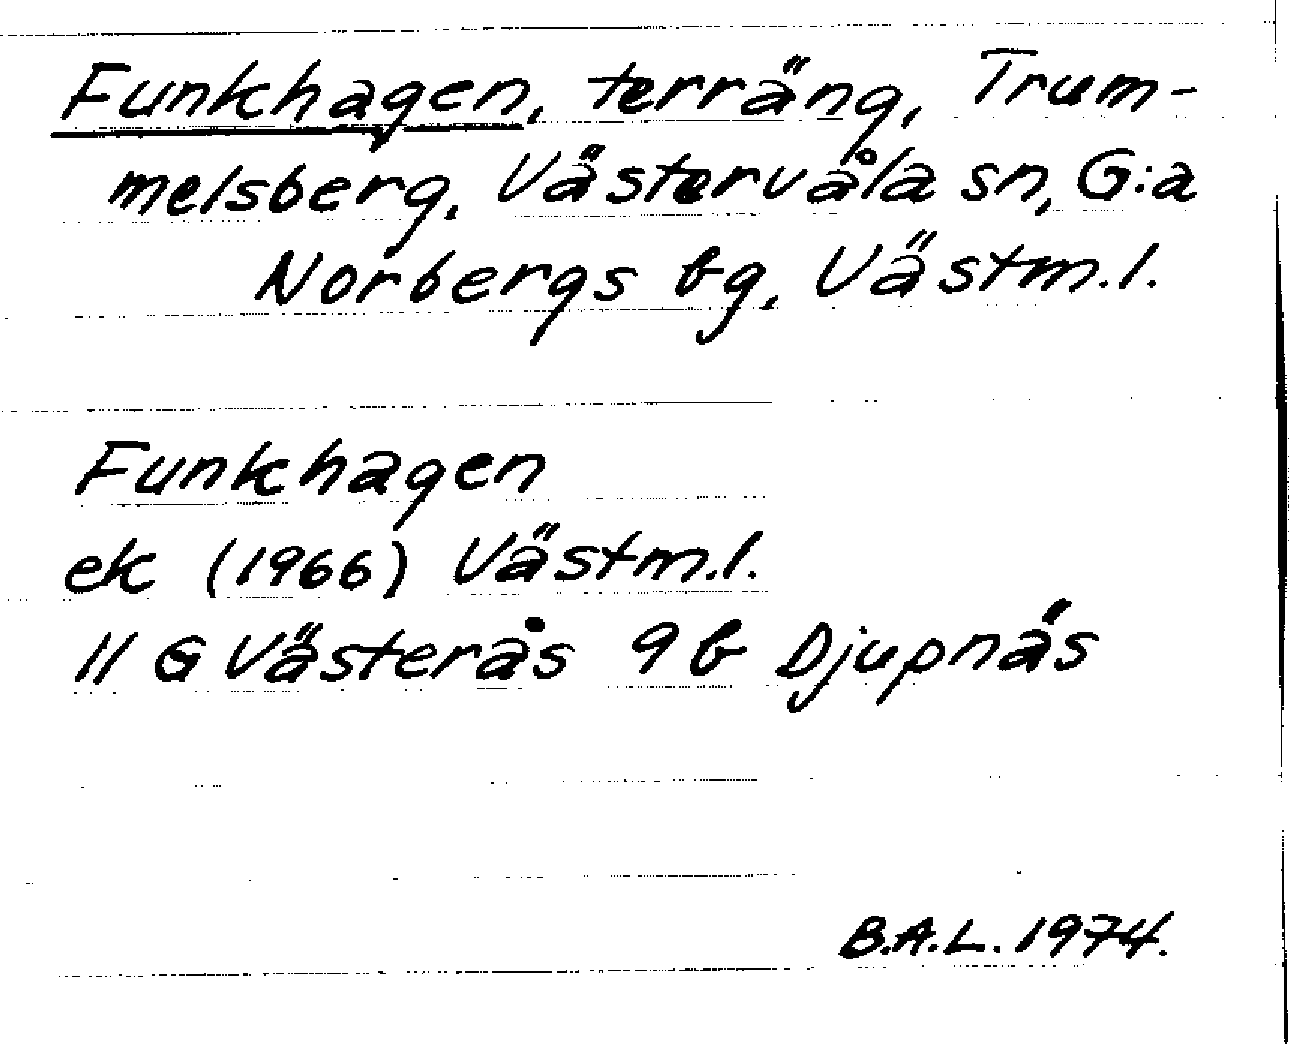 Funkhagen, terräng, Trum-
melsberg, Västervåla sn, G:a
Norbergs bg, Västm.l.
Funkhagen
ek (1966) Västm.l.
11 G Västerås 9 b Djupnäs
B.A.L. 1974.